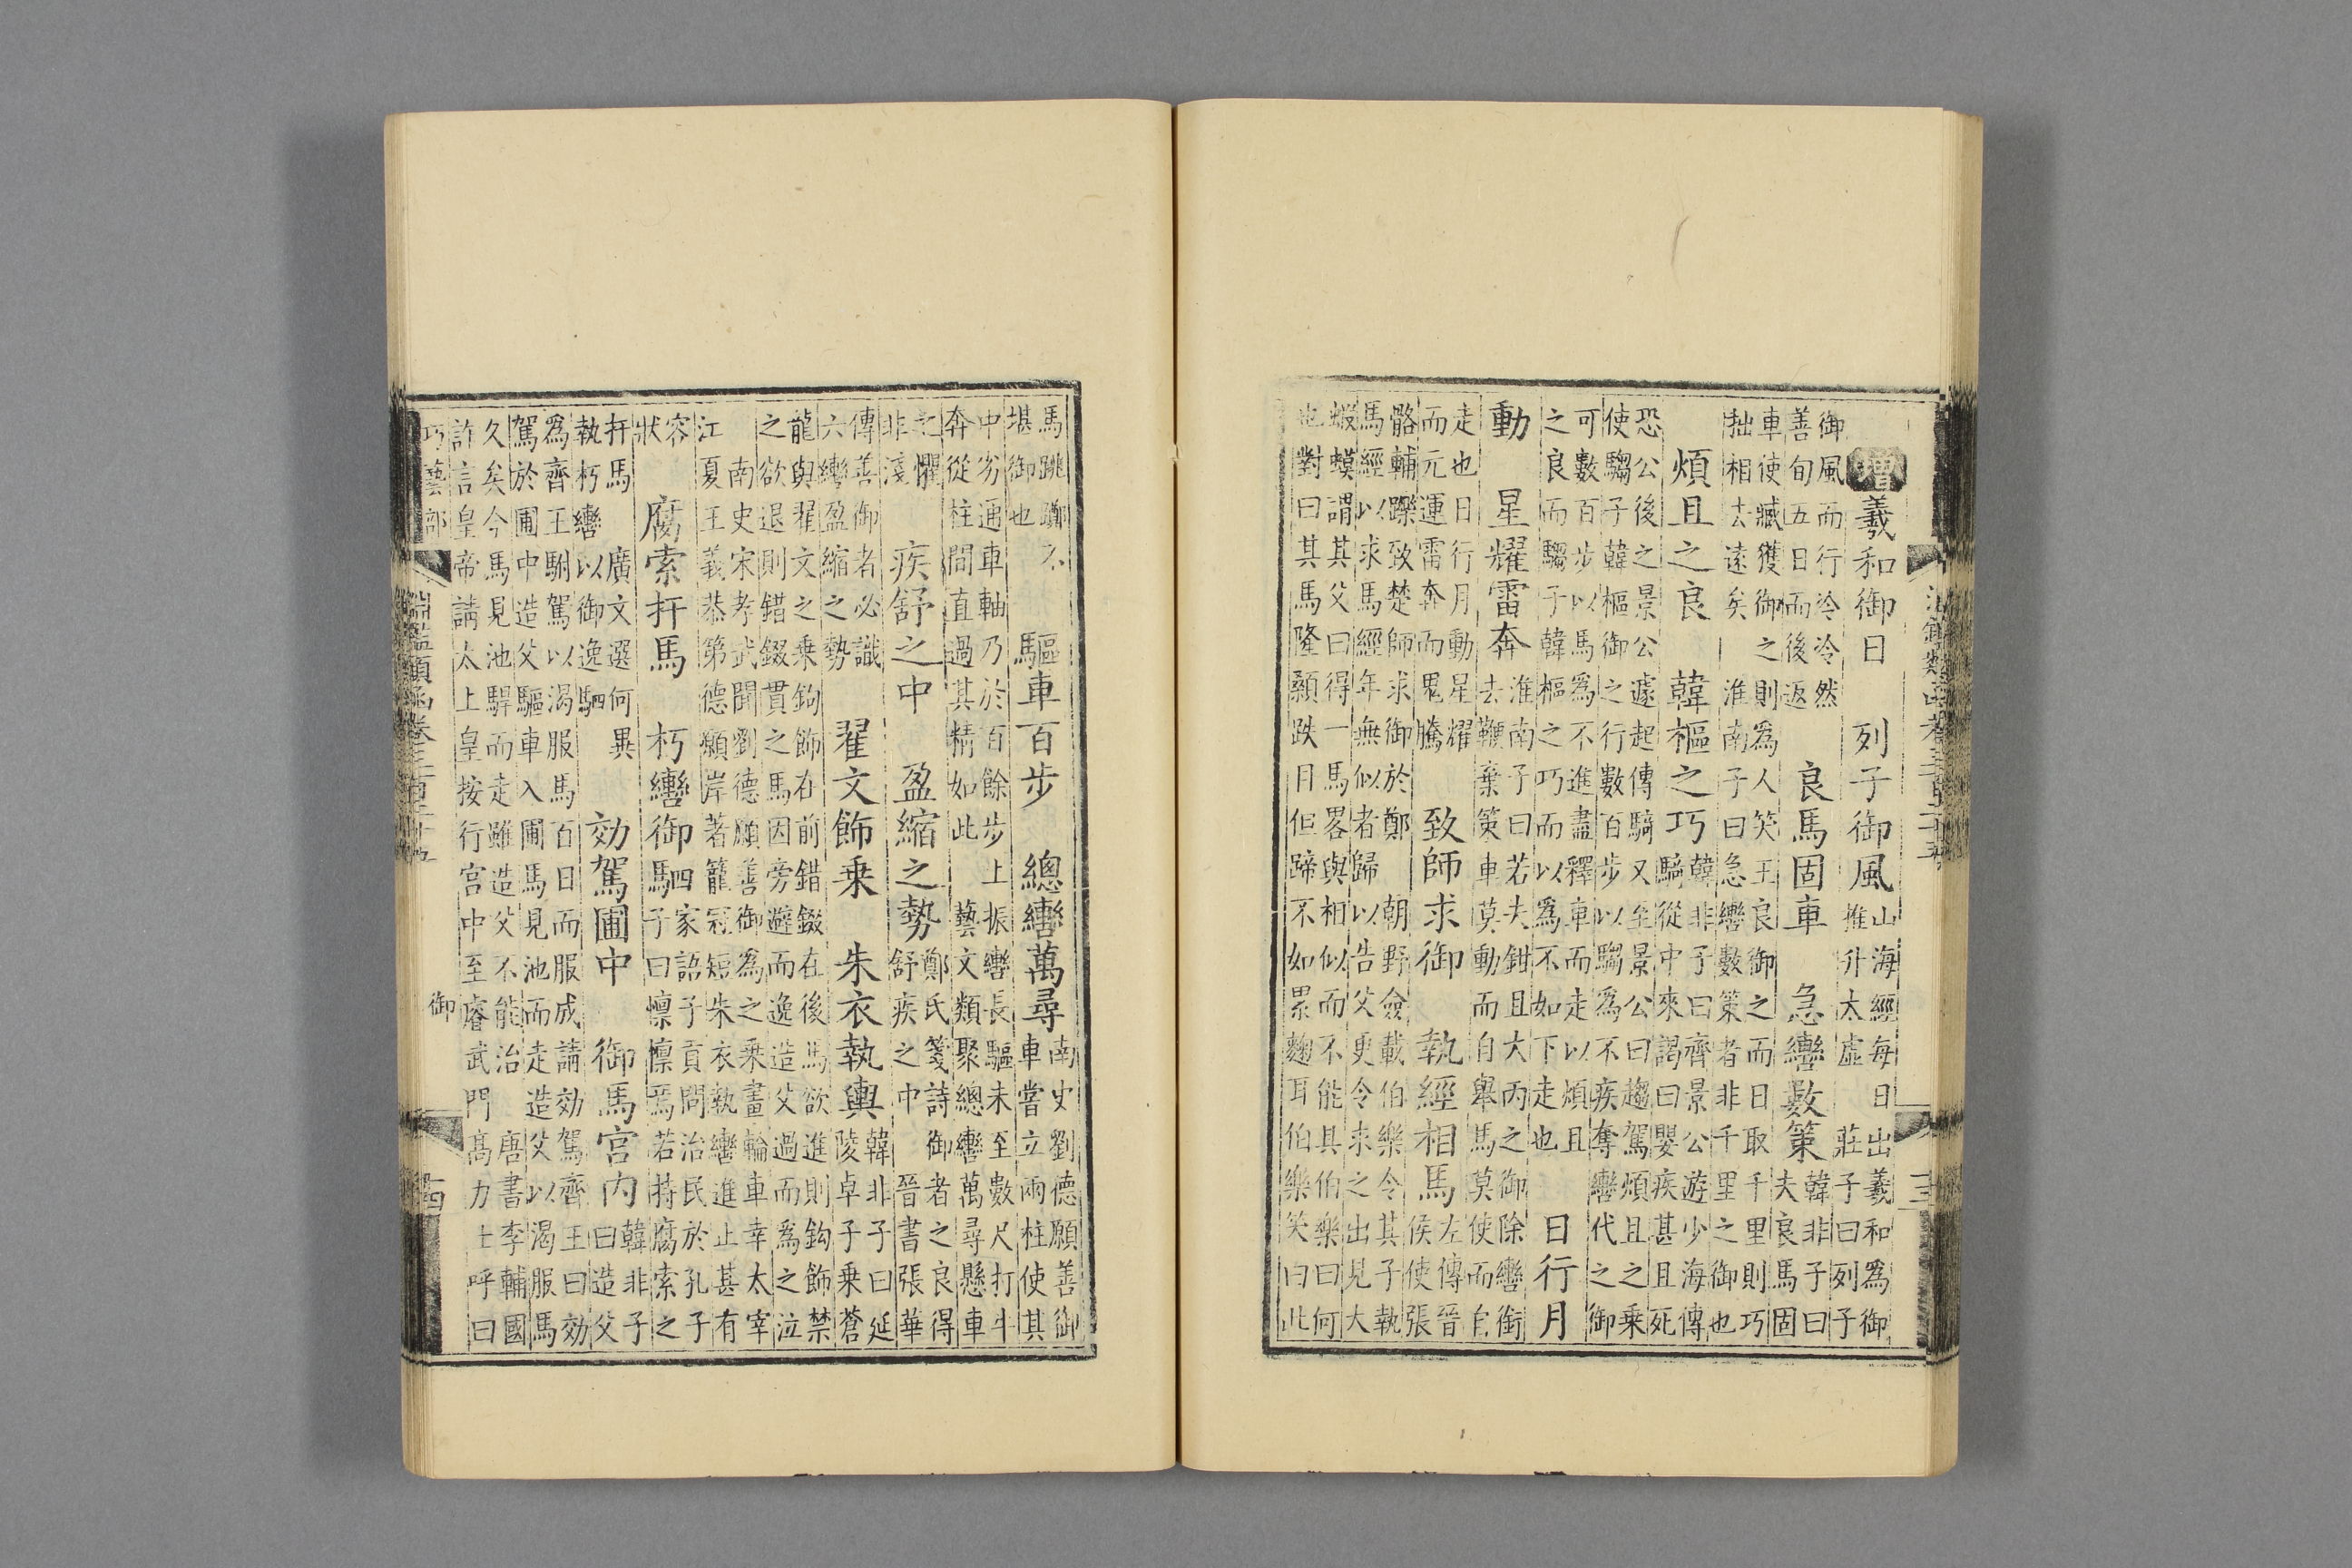 增羲和御日 列子御風 山海經每日出羲和為御
推升太虛 莊子曰列子
御風而行泠泠然
善旬五日而後返
良馬固車 急轡數策 韓非子曰
夫良馬固
車使臧獲御之則為人笑王良御之而日取千里則巧
拙相去遠矣 淮南子曰急轡數策者非千里之御也
煩且之良 韓樞之巧 韓非子曰齊景公游少海傳
騎從中來謁曰嬰疾甚且死
恐公後之景公遽起傳騎又至景公曰趨駕煩且之乘
使騶子韓樞御之行數百步以騶為不疾奪轡代之御
可數百步以馬為不進盡釋車而走以煩且
之良而騶子韓樞之巧而以為不如下走也
日行月
動 星耀雷奔 淮南子曰若夫鉗且大丙之御除轡銜
去鞭棄策車莫動而自舉馬莫使而自
走也日行月動星耀
而元運雷奔而鬼騰
致師求御 執經相馬 左傳晉
侯使張
骼輔躒致楚師求御於鄭 朝野僉載伯樂令其子執
馬經以求馬經年無似者歸以告父更令求之出見大
蝦蟆謂其父曰得一馬畧與相似而不能具伯樂曰何
也對曰其馬隆顙跌目但蹄不如累麴耳伯樂笑曰此
馬跳躑不
堪御也
驅車百步 總轡萬尋 南史劉德願善御
車嘗立兩柱使其
中劣通車軸乃於百餘步上振轡長驅未至數尺打牛
奔從柱間直過其精如此 藝文類聚總轡萬尋懸車
之懼
非淺
疾舒之中 盈縮之勢 鄭氏箋詩御者之良得
舒疾之中 晉書張華
傳善御者必識
六轡盈縮之勢
翟文飾乘 朱衣執輿 韓非子曰延
陵卓子乘蒼
龍與翟文之乘鉤飾在前錯錣在後馬欲進則鈎飾禁
之欲退則錯錣貫之馬因旁避而逸造父過而為之泣
南史宋孝武聞劉德願善御為之乘畫輪車幸太宰
江夏王義恭第德願岸著籠冠短朱衣執轡進止甚有
容
狀
腐索扞馬 朽轡御駟 家語子貢問治民於孔子
子曰懍懍焉若持腐索之
扞馬 廣文選何異
執朽轡以御逸駟
効駕圃中 御馬宮內 韓非子
曰造父
為齊王駙駕以渴服馬百日而服成請効駕齊王曰効
駕於圃中造父驅車入圃馬見池而走造父以渴服馬
久矣今馬見池駻而走雖造父不能治 唐書李輔國
許言皇帝請太上皇按行宮中至睿武門高力士呼曰
巧藝部 淵鑑類函卷三百二十九 御 十四